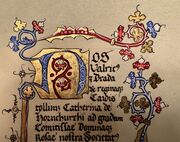 NOS
Valric
Drada
reginaq
Eandio
tollim Catherina de
Hornchurchi ad gradum
Comitissae Dominaq
Rosae nostra Societat